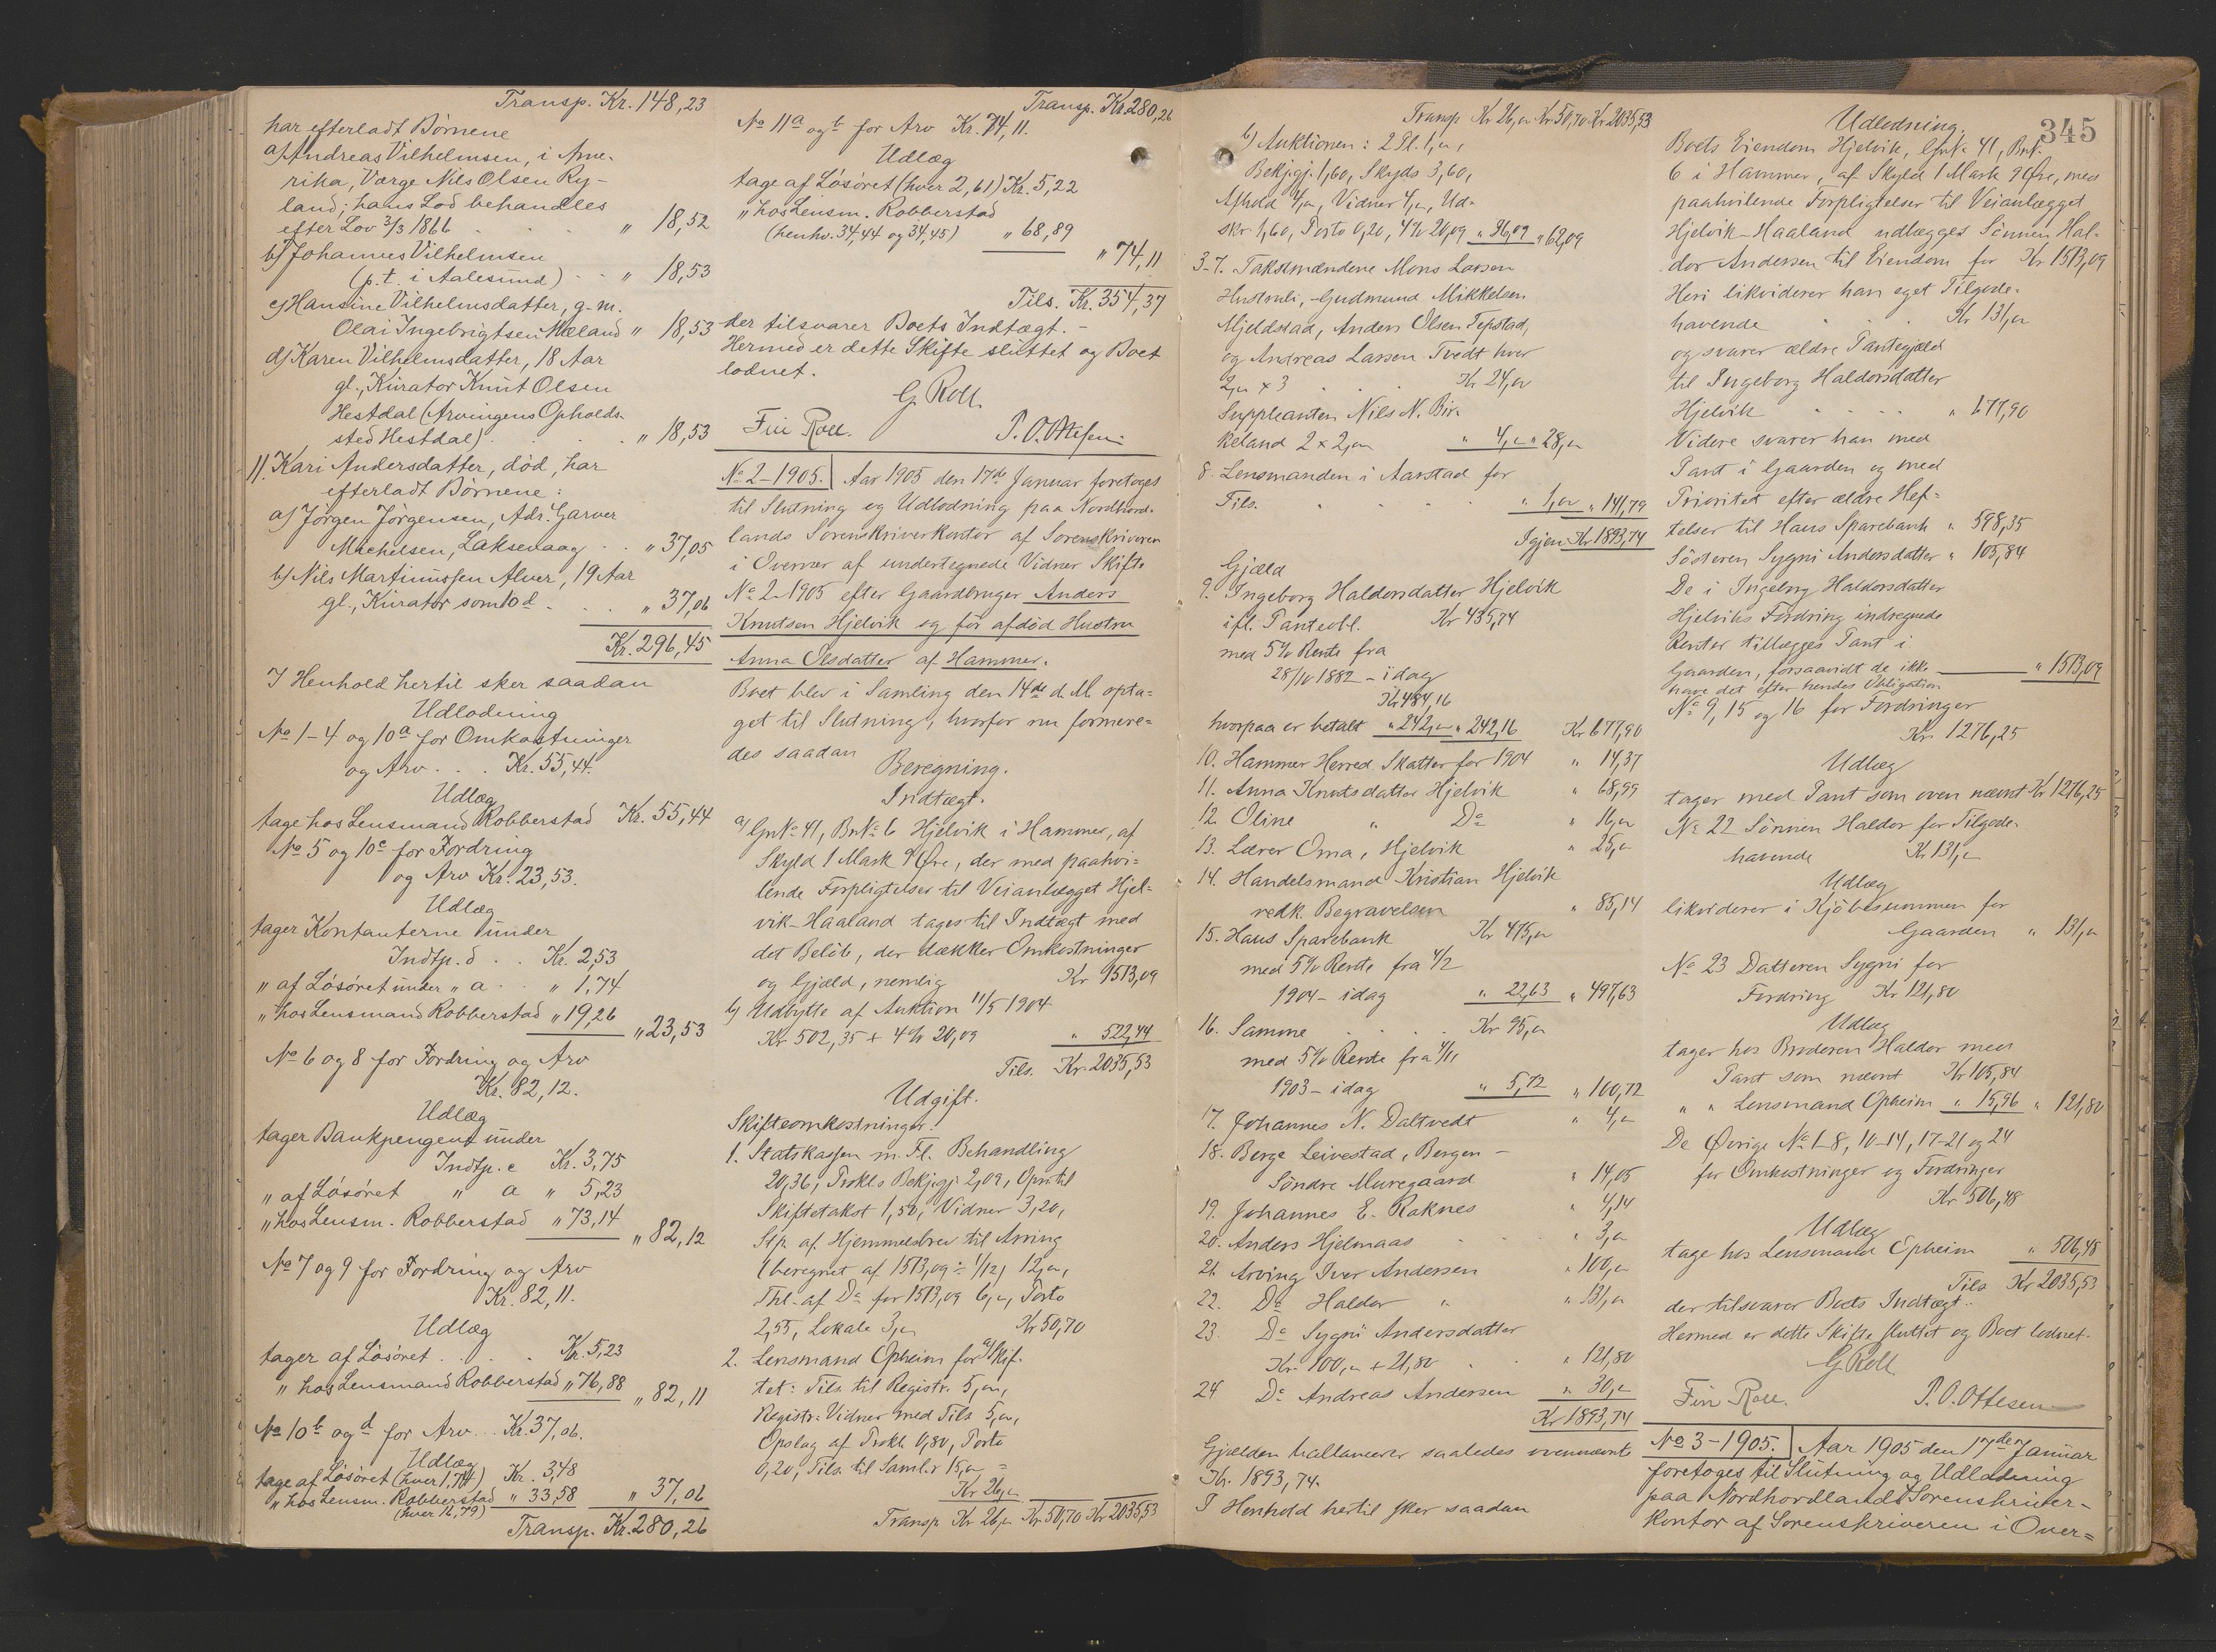 Transp. Kr. 148,23
har efterladt Børnene
a) Andreas Vilhelmsen, i Ame-
rika, Værge Nils Olsen Ry-
land; hans Lod behandles
efter Lov 3/3 1866 . . . " 18,52
b) Johannes Vilhelmsen
(p.t. i Aalesund) . . " 18,53
c) Hansine Vilhelmsdatter, g.m.
Olai Ingebrigtsen Mæland " 18,53
d) Karen Vilhelmsdatter, 18 Aar
gl., Kurator Knut Olsen
Hestdal (Arvingens Opholds-
sted Hestdal) . . . . " 18,53
11. Kari Andersdatter, død, har
efterladt Børnene:
a) Jørgen Jørgensen, Adr. Garver
Michelsen, Laksevaag . . " 37,05
b) Nils Martinussen Alver, 19 Aar
gl., Kurator som 10 d . . . " 37,06
Kr. 296,45
I Henhold hertil sker saadan
Udlodning
No 1-4 og 10a for Omkostninger
og Arv . . . Kr. 55,44.
Udlæg
tage hos Lensmand Robberstad Kr. 55,44
No 5 og 10c for Fordring
og Arv Kr. 23,53.
Udlæg
tager Kontanterne under
Indtp. d . . Kr. 2,53
" af Løsøret under " a . . " 1,74
" hos Lensmand Robberstad " 19,26 " 23,53
No 6 og 8 for Fordring og Arv
Kr. 82,12.
Udlæg
tager Bankpengene under
Indtp. c Kr. 3,75
" af Løsøret " a " 5,23
" hos Lensm. Robberstad " 73,14 " 82,12
No 7 og 9 for Fordring og Arv
Kr. 82,11.
Udlæg
tager af Løsøret . . . . Kr. 5,23
" hos Lensmand Robberstad " 76,88 " 82,11
No 10b og d for Arv . . Kr. 37,06.
Udlæg
tage af Løsøret (hver 1,74) Kr. 3,48
" hos Lensm. Robberstad " 33,58 " 37,06
(hver 16,79)
Transp. Kr. 280,26
Transp. Kr. 280,26
No 11a og b for Arv Kr. 74,11.
Udlæg
tage af Løsøret (hver 2,61) Kr. 5,22
" hos Lensm. Robberstad
(henhv. 34,44 og 34,45) " 68,89
" 74,11
Tils. Kr. 354,37
der tilsvarer Boets Indtægt. -
Hermed er dette Skifte sluttet og Boet
lodnet.
G. Roll.
Finn Roll. P. O. Ottesen
No 2 - 1905. Aar 1905 den 17de Januar foretoges
til Slutning og Udlodning paa Nordhord-
lands Sorenskriverkontor af Sorenskriveren
i Overvær af undertegnede Vidner Skifte
No 2-1905 efter Gaardbruger Anders
Knutsen Hjelvik og før afdød Hustru
Anna Olsdatter af Hammer.
Boet blev i Samling den 14de d.M. opta=
get til Slutning, hvorfor nu formere=
des saadan
Beregning.
Indtægt.
a) Gnr No 41, Br No 6 Hjelvik i Hammer, af
Skyld 1 Mark 9 Øre, der med paahvi=
lende Forpligtelser til Veianlægget Hjel=
vik-Haaland tages til Indtægt med
det Beløb, der dækker Omkostninger
og Gjæld, nemlig Kr 1513,09
b) Udbytte af Auktion 11/5 1904
Kr 502,35 + 4% 20,09 " 522,44
Tils. Kr 2035,53
Udgift.
Skifteomkostninger:
1. Statskassen m. Fl. Behandling
20,36, Prokls Bekjgj. 2,09, Opn til
Skiftetakst 1,50, Vidner 3,20,
Stp. af Hjemmelsbrev til Arving
(beregnet af 1513,09 ÷ 1/12) 12,00,
Thl. af Do for 1513,09 6,00, Porto
2,55, Lokale 3,00 Kr 50,70
2. Lensmand Opheim for a) Skif-
tet: Tils. til Registr. 5,00,
Registr. Vidner med Tils 5,00,
Opslag af Prokl. 0,80, Porto
0,20, Tils. til Saml.r 15,00 =
Kr 26,00
Transp Kr 26,00 Kr 50,70 Kr 2035,53
Transp Kr 26,00 Kr 50,70 Kr 2035,53
b) Auktionen: 2 Pl. 1,00,
Bekjgj. 1,60, Skyds 3,60,
Afhold 4,00, Vidner 4,00, Ud-
skr 1,60, Porto 0,20, 4% 20,09 " 36,09 " 62,09
3-7. Takstmændene Mons Larsen
Husteruli, Gudmund Mikkelsen
Mjeldstad, Anders Olsen Tepstad,
og Andreas Larsen Tvedt hver
2,00 x 3 . . . Kr 24,00
Suppleanten Nils N. Bir-
keland 2 x 2,00 " 4,00 " 28,00
8. Lensmanden i Aarstad for
Tils. . . . . " 1,00 " 141,79
Igjen Kr 1893,74
Gjæld
9. Ingeborg Haldorsdatter Hjelvik
ifl. Panteobl. Kr 435,74
med 5% Rente fra
28/10 1882 - idag
Kr 484,16
hvorpaa er betalt " 242,00 " 242,16 Kr 677,90
10. Hammer Herred Skatter for 1904 " 14,37
11. Anna Knutsdatter Hjelvik " 68,99
12. Oline " Do " 16,00
13. Lærer Oma, Hjelvik " 25,00
14. Handelsmand Kristian Hjelvik
vedk. Begravelsen " 85,14
15. Haus Sparebank Kr 475,00
med 5% Rente fra 4/2
1904 - idag " 22,63 " 497,63
16. Samme . . . . Kr 95,00
med 5% Rente fra 4/11
1903 - idag " 5,72 " 100,72
17. Johannes N. Daltvedt " 4,00
18. Berge Leivestad, Bergen -
Søndre Muregaard " 14,05
19. Johannes E. Raknes " 4,14
20. Anders Hjelmaas . . " 3,00
21. Arving Iver Andersen " 100,00
22. Do Haldor " " 131,00
23. Do Sygni Andersdatter
Kr 100,00 + 21,80 . . " 121,80
24 Do Andreas Andersen " 30,00
Kr 1893,74
Gjælden ballancerer saaledes ovennævnte
Kr. 1893,74.
I Henhold hertil sker saadan
345
Udlodning.
Boets Eiendom Hjelvik, Gr No 41, Br No
6 i Hammer, af Skyld 1 Mark 9 Øre, med
paahvilende Forpligtelser til Veianlægget
Hjelvik-Haaland udlægges Sønnen Hal-
dor Andersen til Eiendom for Kr 1513,09
Heri likviderer han eget Tilgode-
havende . . . Kr 131,00
og svarer ældre Pantegjæld
til Ingeborg Haldorsdatter
Hjelvik . . . . " 677,90
Videre svarer han med
Pant i Gaarden og med
Prioritet efter ældre Hef=
telser til Haus Sparebank " 598,35
Søsteren Sygni Andersdatter " 105,84
De i Ingeborg Haldorsdatter
Hjelviks Fordring indregnede
Renter tillægges Pant i
Gaarden, forsaavidt de ikke " 1513,09
have det efter hendes Obligation
No 9, 15 og 16 for Fordringer
Kr. 1276,25
Udlæg
tager med Pant som oven nævnt Kr 1276,25
No 22 Sønnen Haldor for Tilgode-
havende Kr 131,00
Udlæg
likviderer i Kjøbesummen for
Gaarden " 131,00
No 23 Datteren Sygni for
Fordring Kr 121,80
Udlæg
tager hos Broderen Haldor med
Pant som nævnt Kr 105,84
" " Lensmand Opheim " 15,96 " 121,80
De Øvrige No 1-8, 10-14, 17-21 og 24
for Omkostninger og Fordringer
Kr 506,48
Udlæg
tage hos Lensmand Opheim " 506,48
Tils Kr 2035,53
der tilsvarer Boets Indtægt..
Hermed er dette Skifte sluttet og Boet lodnet.
G Roll
Finn Roll. P. O. Ottesen
No 3 - 1905. Aar 1905 den 17de Januar
foretoges til Slutning og Udlodning
paa Nordhordlands Sorenskriver-
kontor af Sorenskriveren i Over=